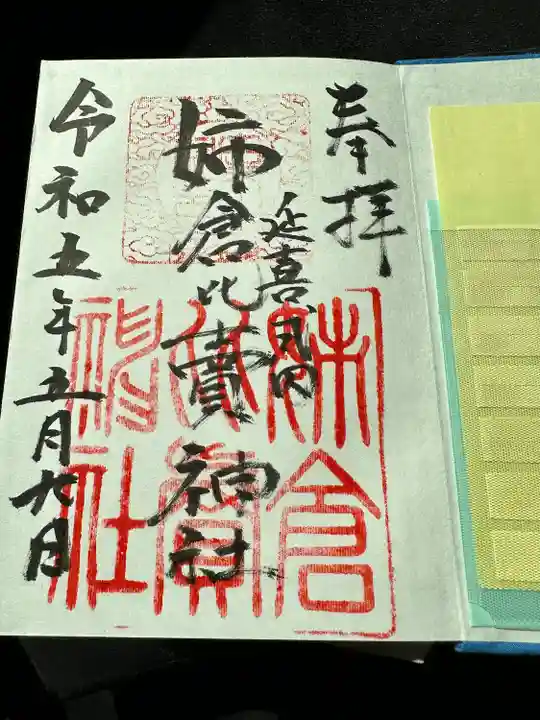 奉拝
延喜式内
姉倉比賣神社
令和五年五月九日
姉倉
比賣
神社